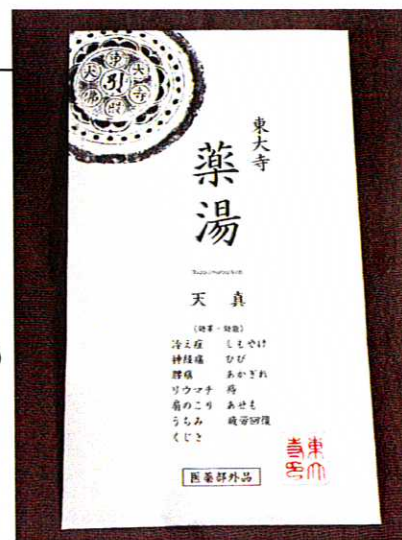 東大寺
薬湯
天真
(効果・効能)
冷え症 しもやけ
神経痛 ひび
腰痛 あかぎれ
リウマチ 痔
肩のこり あせも
うちみ 疲労回復
くじき
医薬部外品